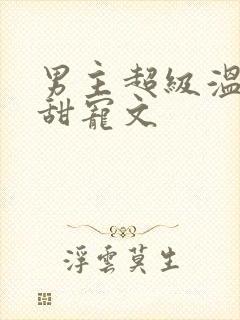 男主超級溫
甜寵文
浮雲莫生